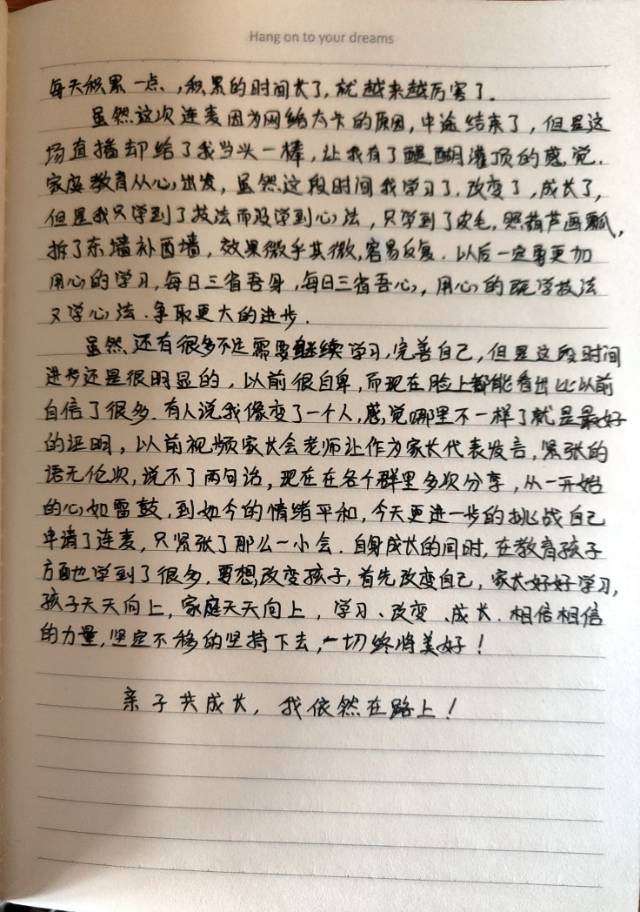 Hang on to your dreams
每天积累一点、,积累的时间长了,就越来越厉害了.
虽然这次连麦因为网络太卡的原因,中途结束了,但是这
场直播却给了我当头一棒,让我有了醍醐灌顶的感觉.
家庭教育从心出发,虽然这段时间我学习了.改变了,成长了,
但是我只学到了技法而没学到心法,只学到了皮毛,照葫芦画瓢,
拆了东墙补西墙,效果微乎其微,容易反复.以后一定要更加
用心的学习,每日三省吾身,每日三省吾心,用心的既学技法
又学心法.争取更大的进步.
虽然还有很多不足需要继续学习,完善自己,但是这段时间
进步还是很明显的,以前很自卑,而现在脸上都能看出比以前
自信了很多.有人说我像变了一个人,感觉哪里不一样了就是最好
的证明,以前视频家长会老师让作为家长代表发言,紧张的
语无伦次,说不了两句话,现在在各个群里多次分享,从一开始
的心如雷鼓,到如今的情绪平和,今天更进一步的挑战自己
申请了连麦,只紧张了那么一小会.自身成长的同时,在教育孩子
方面也学到了很多,要想改变孩子,首先改变自己,家长好好学习,
孩子天天向上,家庭天天向上,学习、改变、成长.相信相信
的力量,坚定不移的坚持下去,一切终将美好!
亲子共成长,我依然在路上!